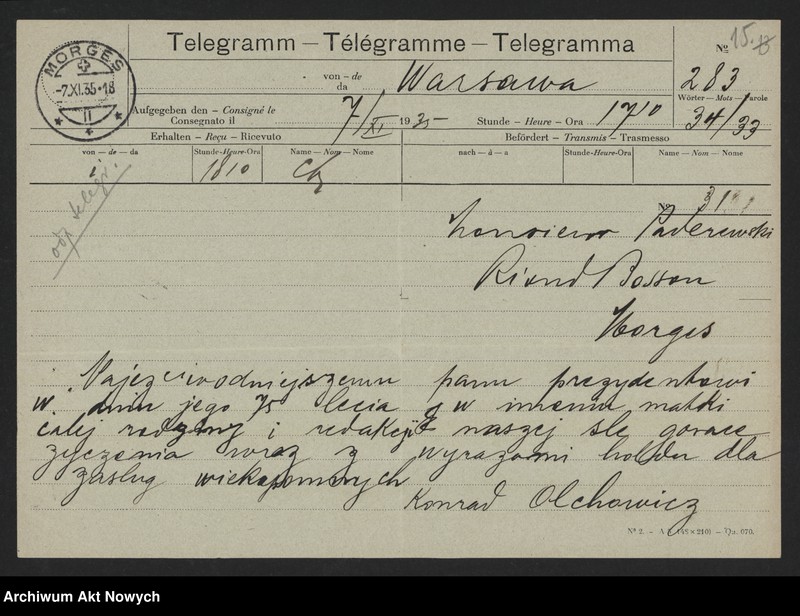 15.
Telegramm – Télégramme – Telegramma
Nº
MORGES
-7.XI.35-18
von – de
da
Warsawa
283
Wörter – Mots – Parole
34/33
Aufgegeben den – Consigné le
Consegnato il
7/XI 1935
Stunde – Heure – Ora 1710
Erhalten – Reçu – Ricevuto
Befördert – Transmis – Trasmesso
von – de – da
Stunde-Heure-Ora
Name – Nom – Nome
nach – à – a
Stunde-Heure-Ora
Name – Nom – Nome
1810
odp telegr.
Nº
Monsieur Paderewski
Riond Bosson
Morges
Najczcigodniejszemu panu prezydentowi
w dniu jego 75 lecia w imieniu matki
calej rodziny i redakcji naszej sle gorace
zyczenia wraz z wyrazami holdu dla
zaslug wiekopomnych
Konrad Olchowicz
Archiwum Akt Nowych